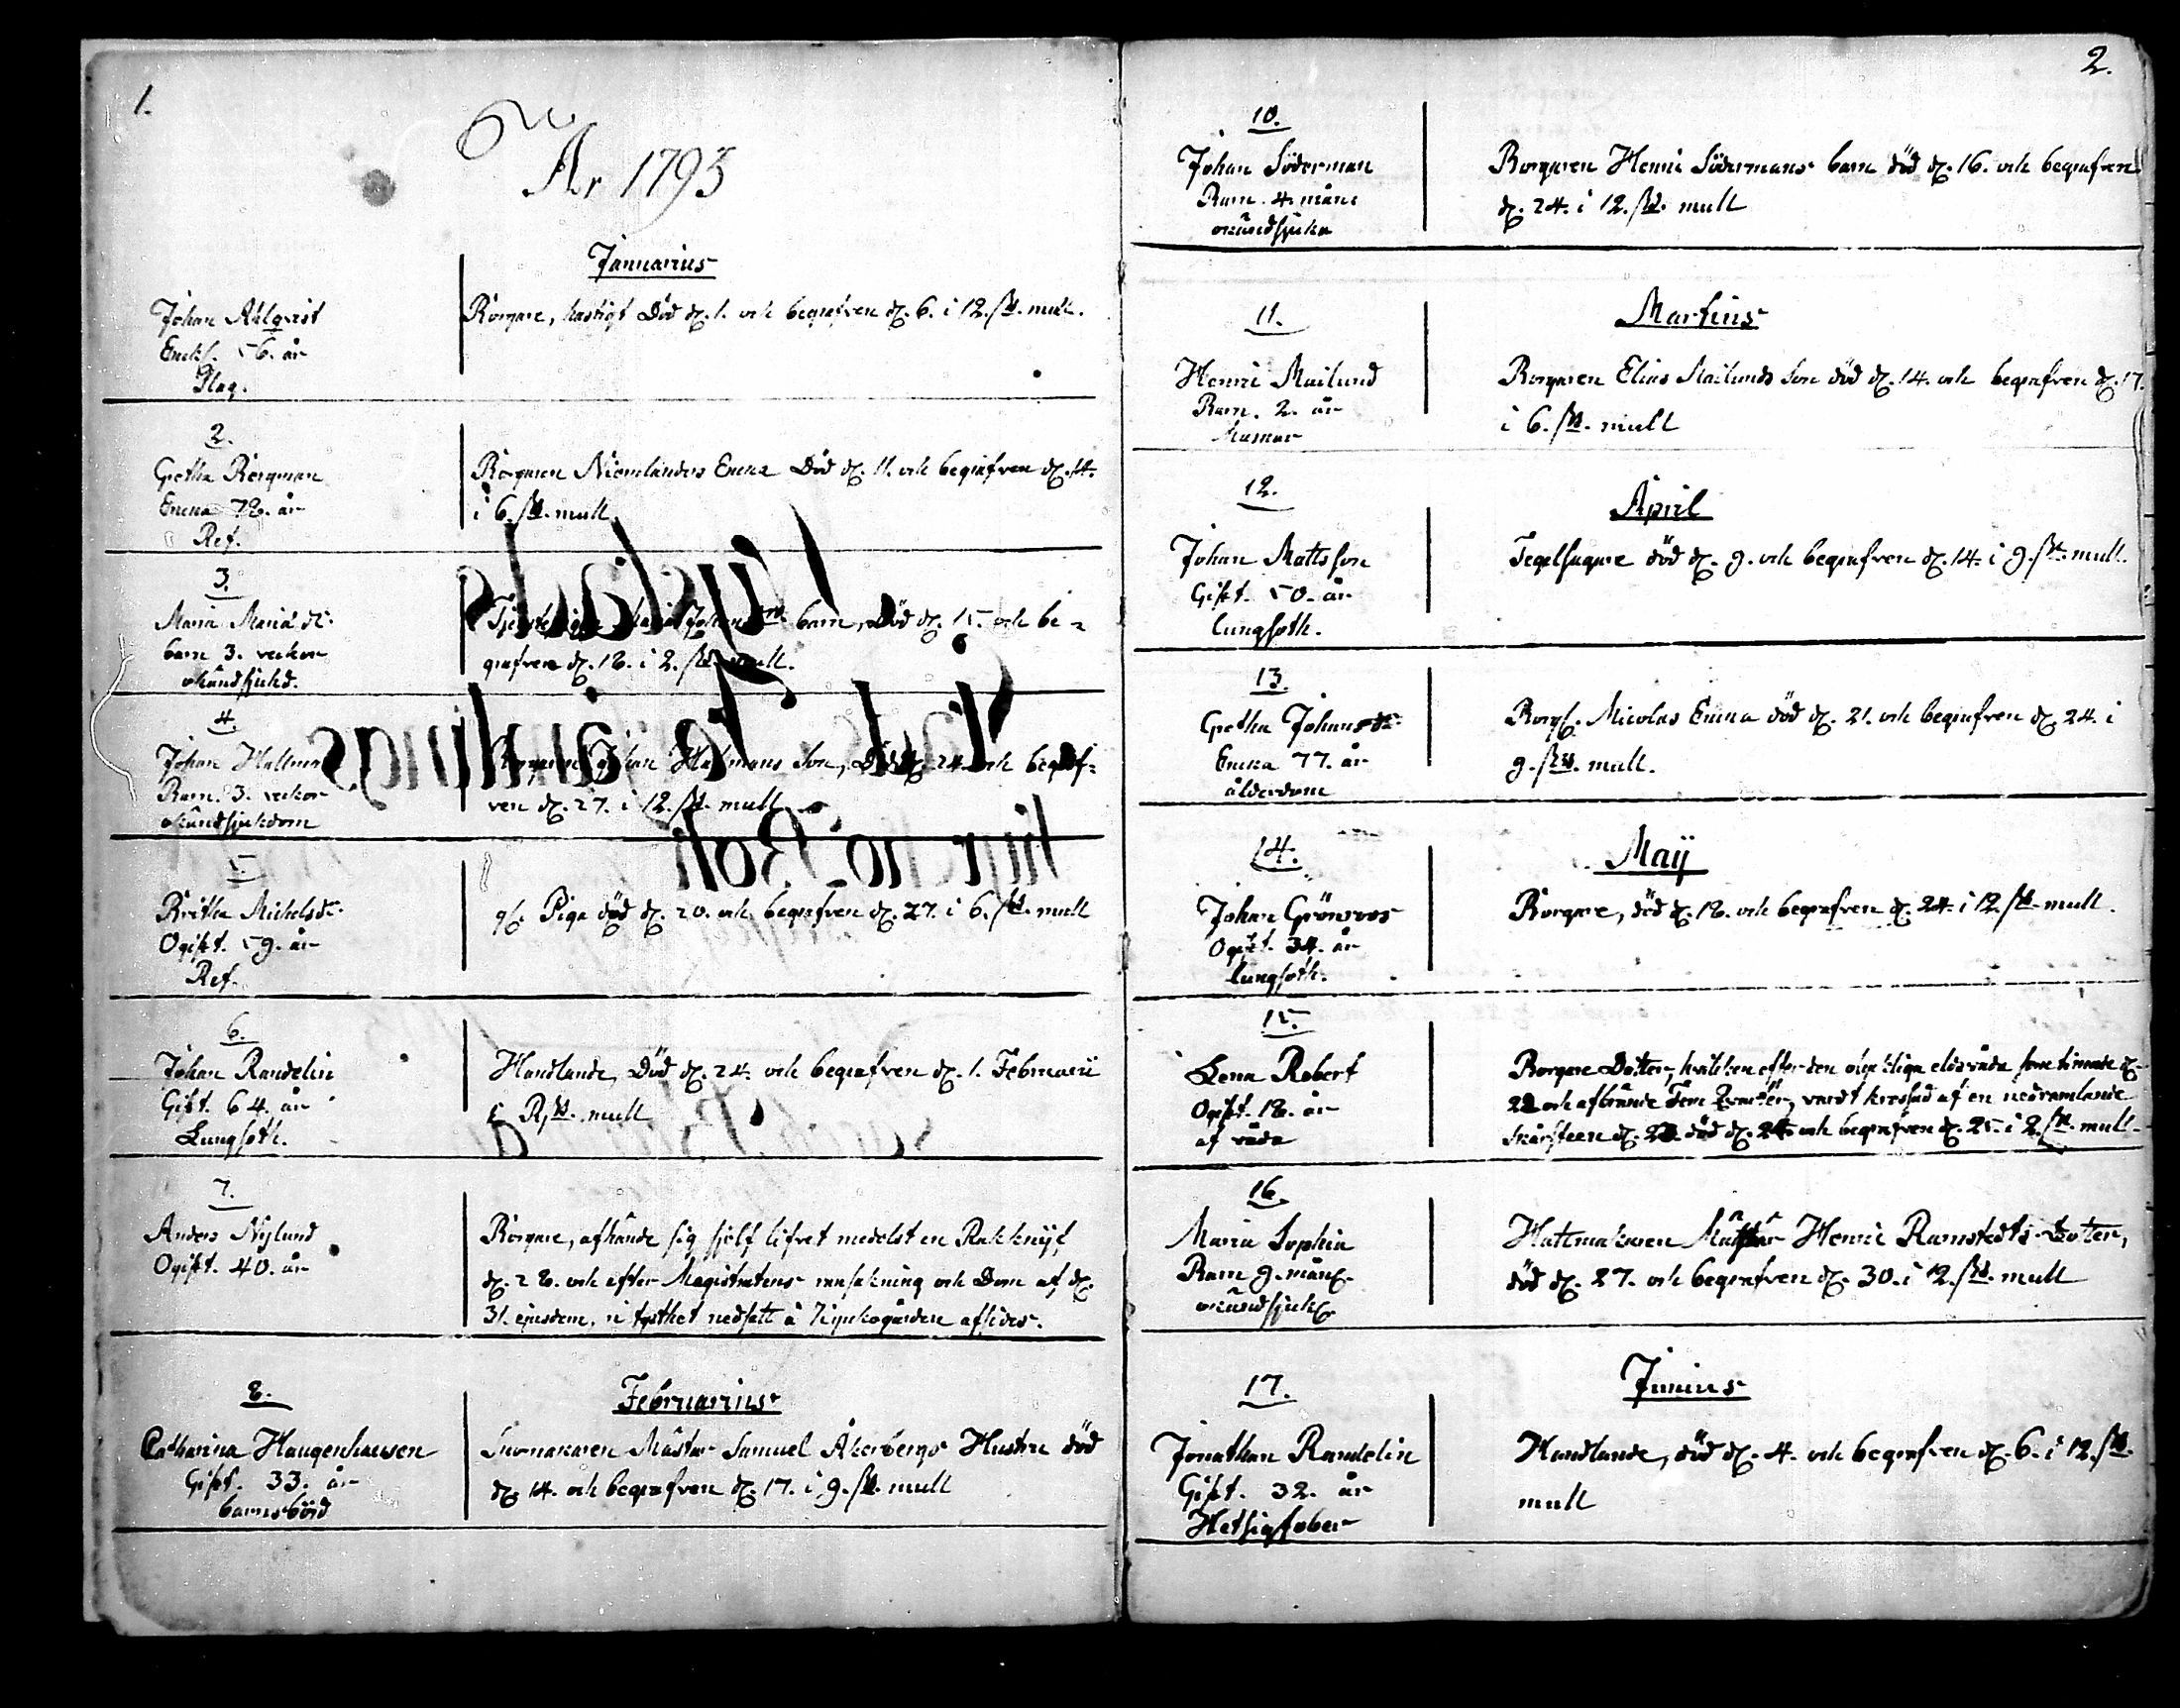 1.
År 1793
Januarius
Johan Ahlqvist
Enckl. 56. år
Slag.
Borgare, hastigt Död d. 1. och begrafven d. 6. i 12. sk. mull.
2.
Gretha Bergman
Encka 78. år
Ref.
Borgaren Niemlanders Encka Död d. 11. och begrafven d. 14.
i 6. sk. mull
3.
Maria Maria dr
barn 3. veckor
okänd sjukd.
barn, Död d. 15. och be-
grafven d. 18. i 2. sk. mull.
4.
Johan Hallman
Barn. 3. veckor
okänd sjukdom
Borgaren Johan Hallmans Son, Död d. 24. och begraf-
ven d. 27. i 12. sk. mull
5.
Britha Michelsdr.
Ogift. 59. år
Ref.
gl. Piga död d. 20. och begrafven d. 27. i 6. sk. mull
6.
Johan Randelin
Gift. 64. år
Lungsoth.
Handlande, Död d. 24. och begrafven d. 1. Februarii
i mull
7.
Anders Nylund
Ogift. 40. år
Borgare, afhände sig sjelf lifvet medelst en Rakknijf
d. 28. och efter Magistratens ransakning och Dom af d.
31. ejusdem, i tysthet nedsatt å Kyrkogården afsides.
8.
Februarius
Catharina Haugenhausen
Gift. 33. år
barnsbörd
Svarmakaren Mästar Samuel Åkerbergs Hustru död
d. 14. och begrafven d. 17. i 9. sk. mull
2.
10.
Johan Söderman
Barn. 4. måna
okändsjuka
Borgaren Henric Södermans barn död d. 16. och begrafven
d. 24. i 12. sk. mull
11.
Martius
Henric Mailund
Barn. 2. år
Borgaren Elias Mailunds Son död d. 14. och begrafven d. 17.
i 6. sk. mull
12.
April
Johan Mattsson
Gift. 50. år
lungsoth.
död d. 9. och begrafven d. 14. i 9. sk. mull.
13.
Gretha Johansdr
Encka 77. år
ålderdom
Micolas Encka död d. 21. och begrafven d. 24. i
9. sk. mull.
14.
Maij
Johan Grönroos
Ogift. 34. år
lungsoth.
Borgare, död d. 18. och begrafven d. 24. i 12. sk. mull.
15.
Lena Robert
Ogift. 18. år
af våda
Borgare Dotter, hvilken efter den olyckliga eldsvåda som timade d.
22 och afbrände Fem Qvarter, vardt krossad af en nedramlande
Skårsteen d. 23. död d. 24. och begrafven d. 25. i 2. sk. mull.
16.
Maria Sophia
Barn 9. mån.
okändsjuk
Hattmakaren Mästar Henric Ramstedts Dotter,
död d. 27. och begrafven d. 30. i 12. sk. mull
17.
Junius
Jonathan Randelin
Gift. 32. år
Hetsigfeber
Handlande, död d. 4. och begrafven d. 6. i 12. sk.
mull